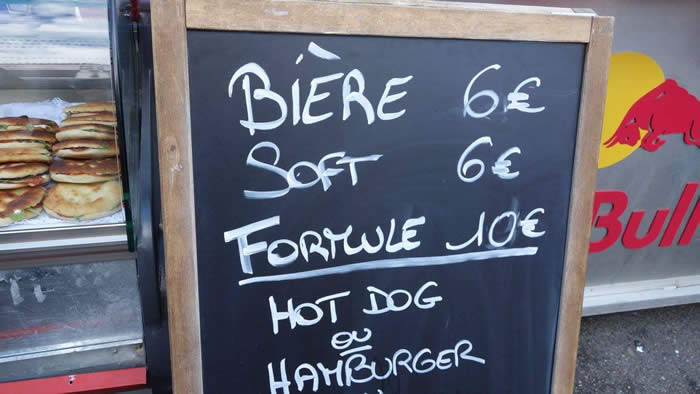 BIÈRE 6€
SOFT 6€
FORMULE 10€
HOT DOG
OU
HAMBURGER
Bull